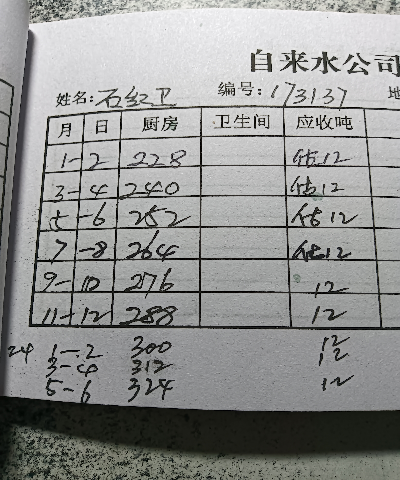 自来水公司
姓名:石红卫 编号:173137
月 日 厨房 卫生间 应收吨
1-2 228 估12
3-4 240 估12
5-6 252 估12
7-8 264 估12
9-10 276 12
11-12 288 12
24 1-2 300 12
3-4 312 12
5-6 324 12